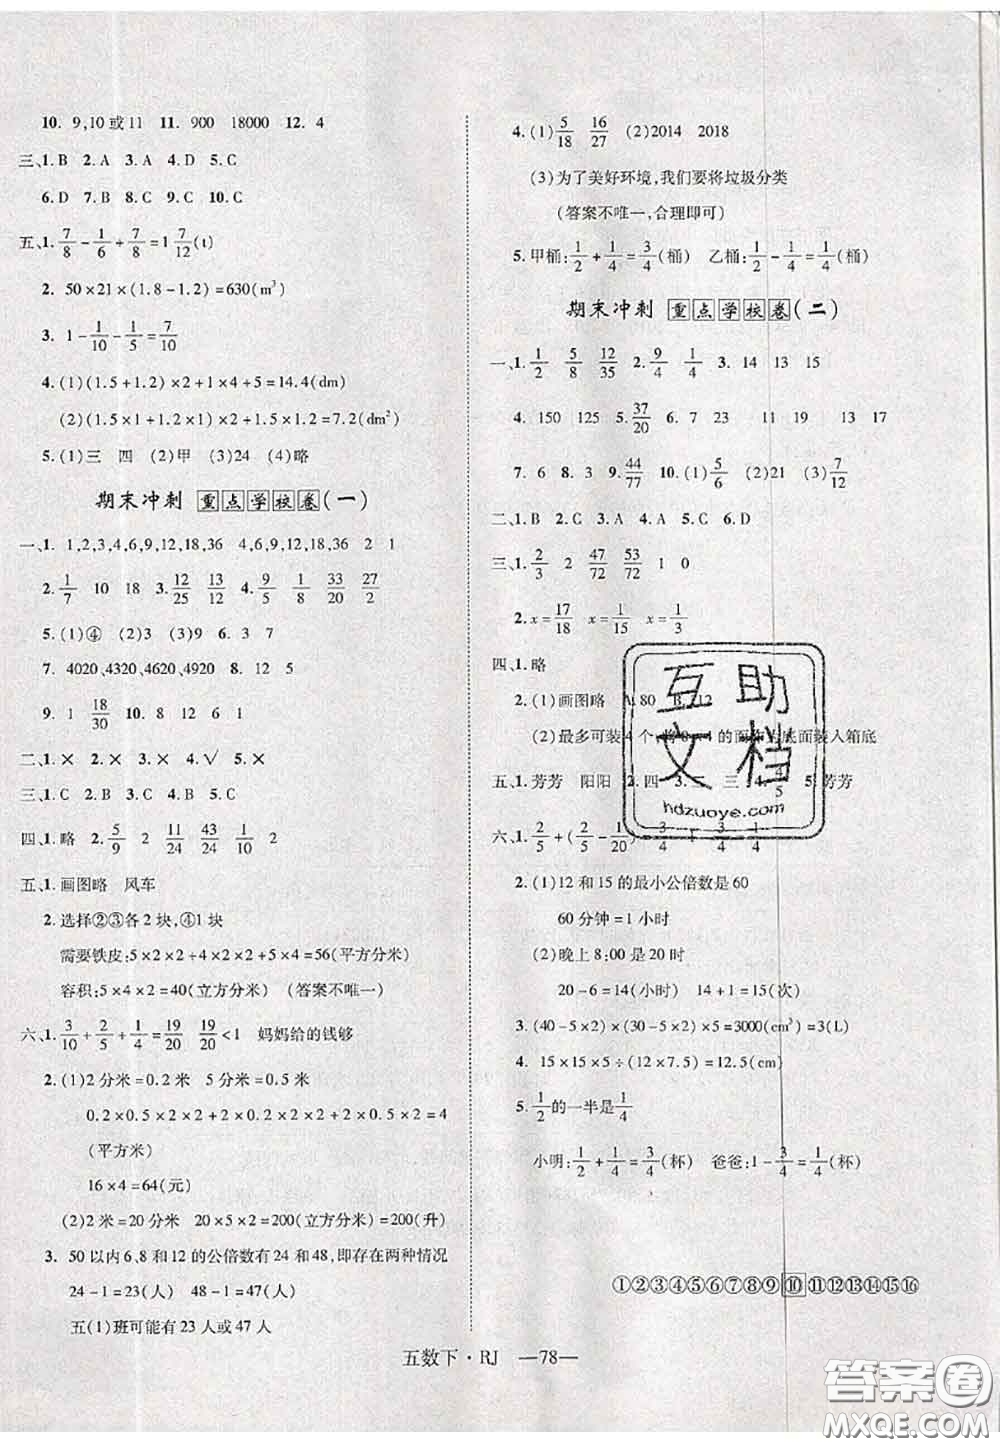 10. 9,10或11 11. 900 18000 12. 4
三、1. B 2. A 3. A 4. D 5. C
6. D 7. B 8. C 9. C 10. C
五、1. 7/8 - 1/6 + 7/8 = 1 7/12 (t)
2. 50×21×(1.8-1.2)=630(m³)
3. 1 - 1/10 - 1/5 = 7/10
4. (1)(1.5+1.2)×2×1×4+5=14.4(dm)
(2)(1.5×1+1.2×1)×2+1.5×1.2=7.2(m²)
5. (1)三 四 (2)甲 (3)24 (4)略
期末冲刺 重点学校卷(一)
一、1. 1,2,3,4,6,9,12,18,36 4,6,9,12,18,36 2 1
2. 1/7 10 18 3. 12/25 13/12 4. 9/5 1/8 33/20 27/2
5. (1)④ (2)3 (3)9 6. 3 7
7. 4020,4320,4620,4920 8. 12 7
9. 1 18/30 10. 8 12 6 1
二、1. × 2. × 3. × 4. √ 5. ×
三、1. C 2. B 3. C 4. A 5. C
四、1. 略 2. 5/9 2 11/24 43/24 1/10
五、1. 画图略 风车
2. 选择②③各2块,④1块
需要铁皮:5×2×2+4×2×2+5×4=56(平方分米)
容积:5×4×2=40(立方分米) (答案不唯一)
六、1. 3/10 + 2/5 + 1/4 = 19/20 19/20 < 1 妈妈给的钱够
2. (1)2分米=0.2米 5分米=0.5米
0.2×0.5×2×2+0.2×0.2×2+0.5×0.5×2×2=4
(平方米)
16×4=64(元)
(2)2米=20分米 20×5×2=200(立方分米)=200(升)
3. 50以内6、8和12的公倍数有24和48,即存在两种情况
24-1=23(人) 48-1=47(人)
五(1)班可能有23人或47人
4. (1) 5/18 16/27 (2)2014 2018
(3)为了美好环境,我们要将垃圾分类
(答案不唯一,合理即可)
5. 甲桶: 1/2 + 1/4 = 3/4 (桶) 乙桶: 1/2 - 1/4 = 1/4 (桶)
期末冲刺 重点学校卷(二)
一、1. 1/2 5/8 12/35 2. 9/4 1/4 3. 14 13 15
4. 150 125 5. 37/20 6. 7 23 11 19 13 17
7. 6 12 8. 3 9. 44/77 10. (1) 5/6 (2)21 (3) 7/12
二、1. B 2. C 3. A 4. C 5. C 6. D
三、1. 2/3 2 47/72 53/72 1 0
2. x=17/18 x=1/15 x=1/3
四、1. 略
2. (1)画图略 A.80 B.112
(2)最多可装4个,将 的面 底面装入箱底
五、1. 芳芳 阳阳 2. 四 3. 二 三 4/5 5. 芳芳
六、1. 2/5 + (2/5 - 1/20) = 3/4 + 3/4 1/4
2. (1)12和15的最小公倍数是60
60分钟=1小时
(2)晚上8:00是20时
20-6=14(小时) 14+1=15(次)
3. (40-5×2)×(30-5×2)×5=3000(cm³)=3(L)
4. 15×15×5÷(12×7.5)=12.5(cm)
5. 1/2的一半是1/4
小明: 1/2 + 1/4 = 3/4 (杯) 爸爸: 1 - 3/4 = 1/4 (杯)
①②③④⑤⑥⑦⑧⑨⑩⑪⑫⑬⑭⑮⑯
五数下·RJ —78—
互助
文档
hdzuoye.com
答案圈
MXQE.COM